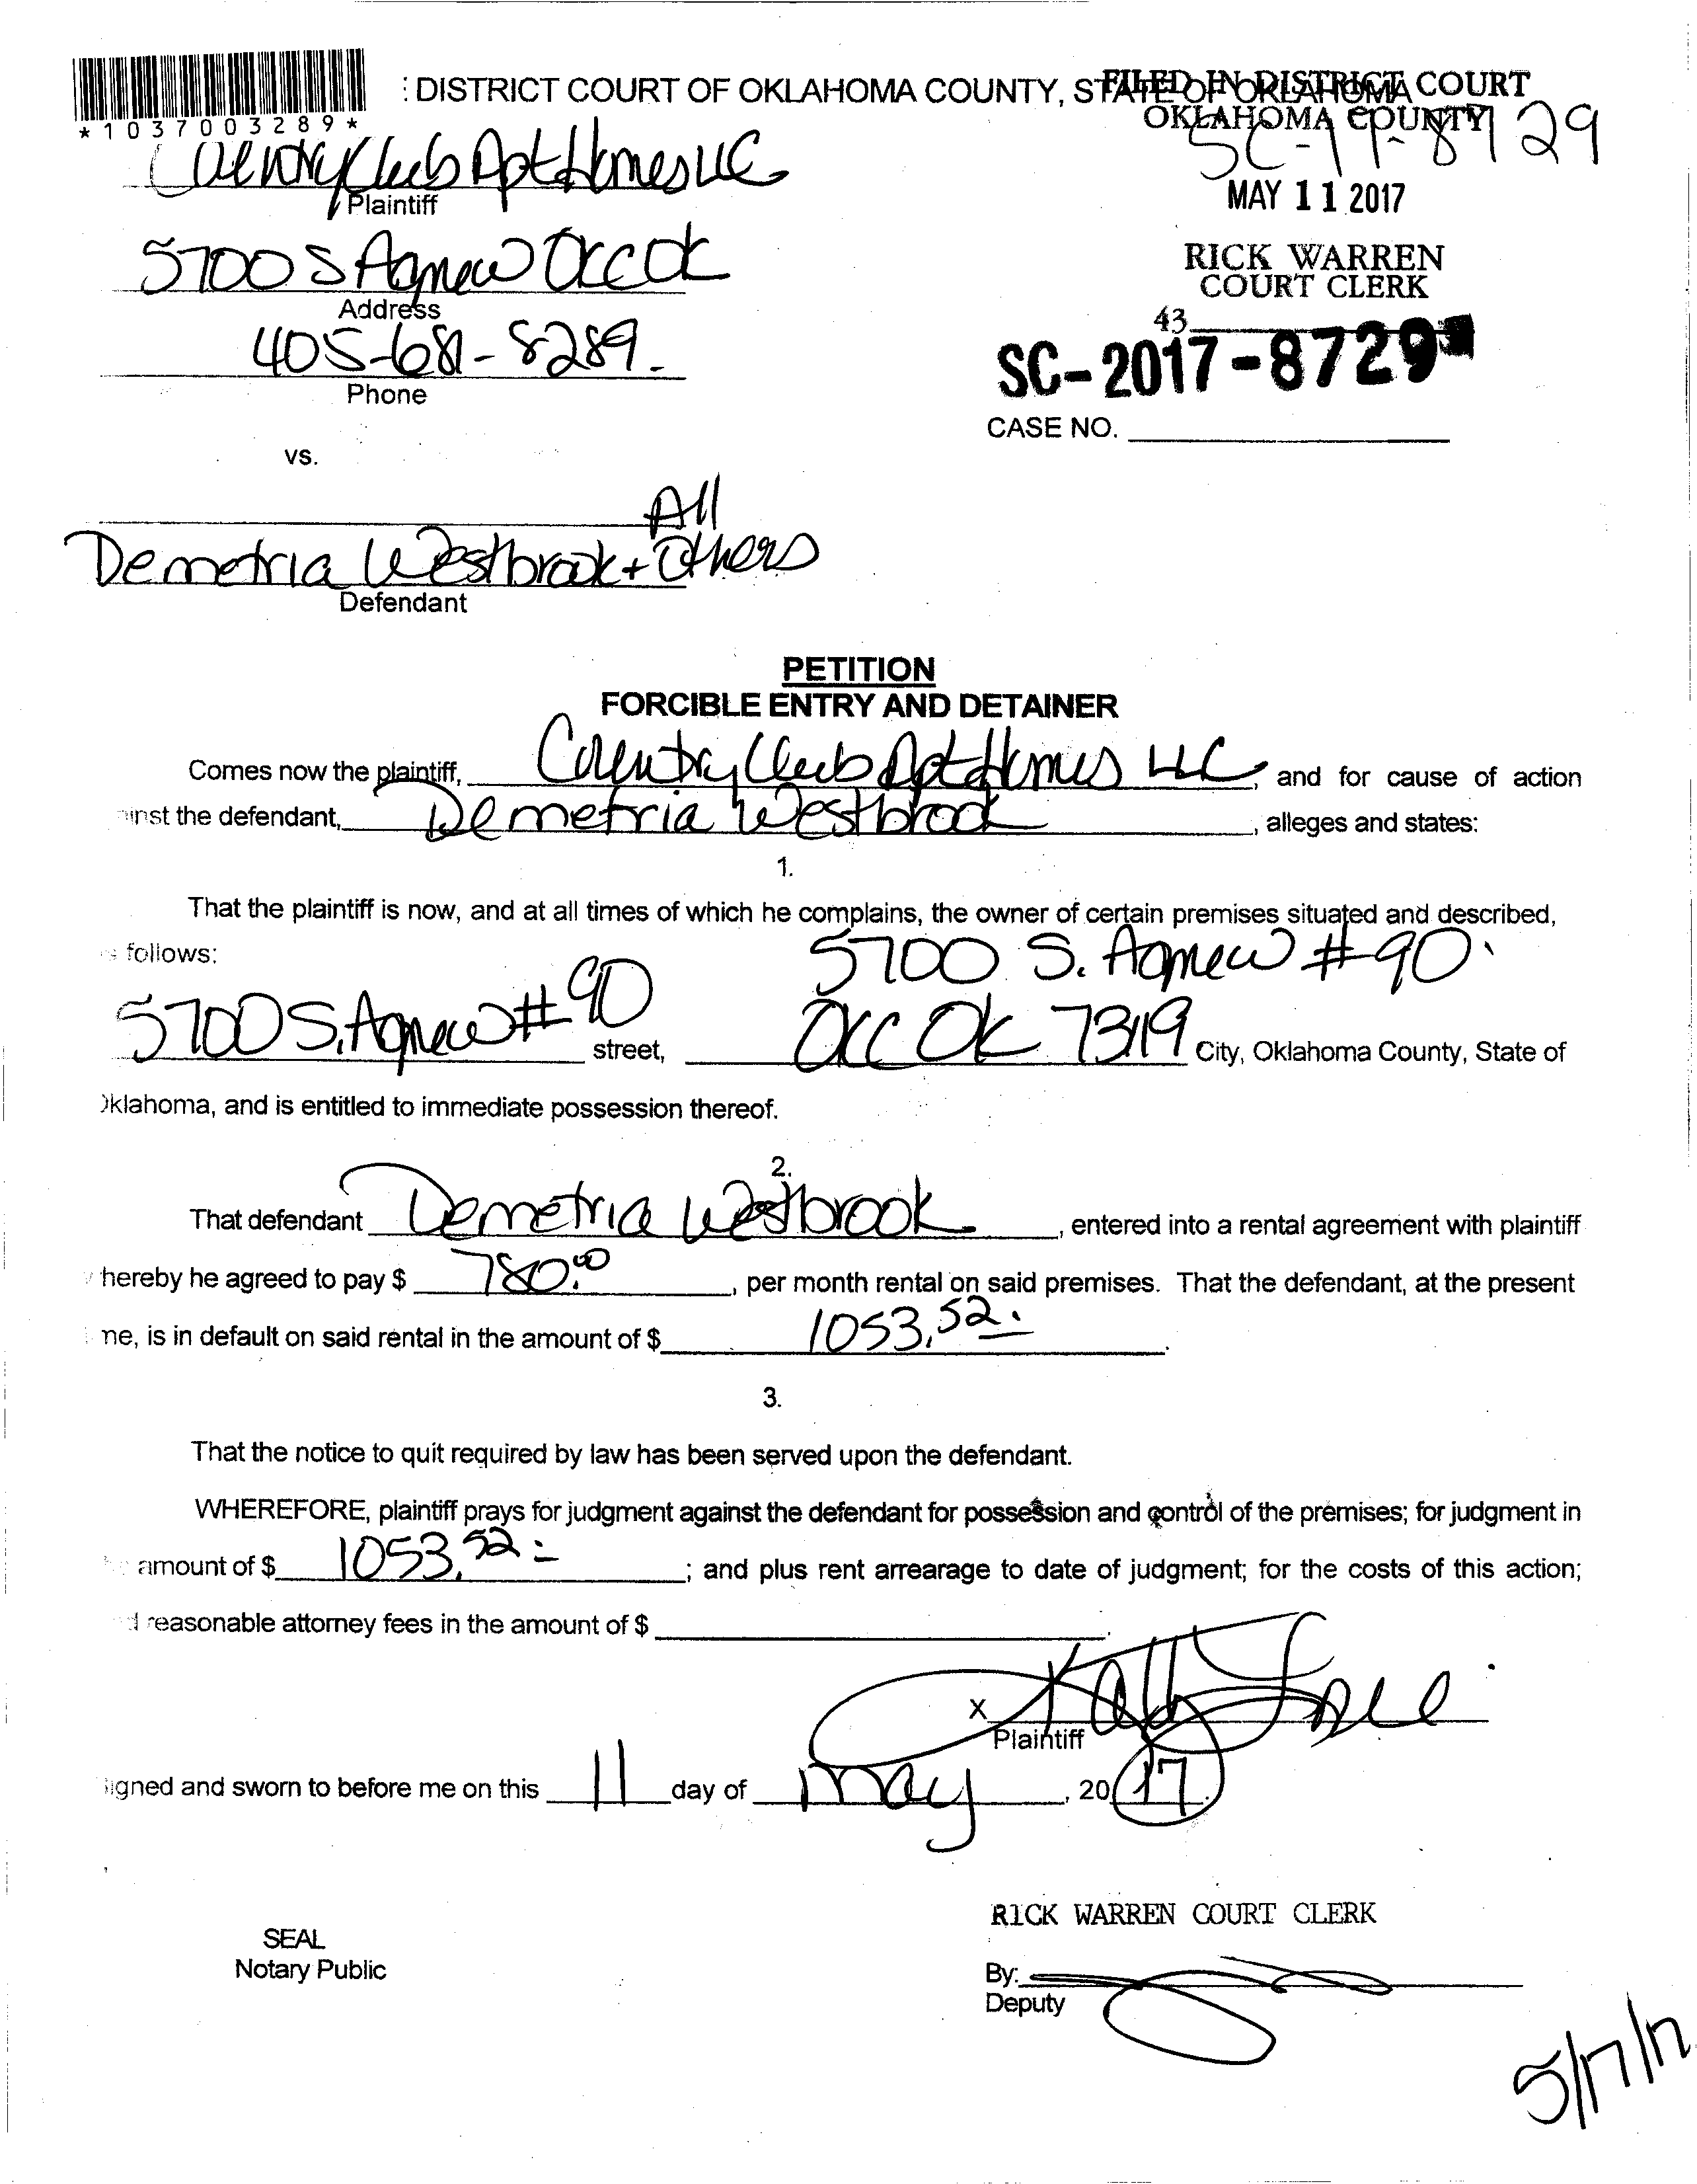 : DISTRICT COURT OF OKLAHOMA COUNTY, STATE OF OKLAHOMA
FILED IN DISTRICT COURT
OKLAHOMA COUNTY
*1037003289*
SC-17-8729
Country Club Apt Homes LLC
Plaintiff
MAY 11 2017
5700 S Agnew OKC OK
Address
RICK WARREN
COURT CLERK
405-681-8289
Phone
43
SC-2017-8729
CASE NO.
vs.
All
Demetria Westbrook + Others
Defendant
PETITION
FORCIBLE ENTRY AND DETAINER
Comes now the plaintiff, Country Club Apt Homes LLC, and for cause of action
inst the defendant, Demetria Westbrook, alleges and states:
1.
That the plaintiff is now, and at all times of which he complains, the owner of certain premises situated and described,
follows:
5700 S. Agnew #90
5700 S. Agnew #90 street, OKC OK 73119 City, Oklahoma County, State of
klahoma, and is entitled to immediate possession thereof.
2.
That defendant Demetria Westbrook, entered into a rental agreement with plaintiff
hereby he agreed to pay $ 780.00, per month rental on said premises. That the defendant, at the present
me, is in default on said rental in the amount of $ 1053.52.
3.
That the notice to quit required by law has been served upon the defendant.
WHEREFORE, plaintiff prays for judgment against the defendant for possession and control of the premises; for judgment in
amount of $ 1053.52; and plus rent arrearage to date of judgment; for the costs of this action;
reasonable attorney fees in the amount of $
X
Plaintiff
igned and sworn to before me on this 11 day of May, 2017.
RICK WARREN COURT CLERK
SEAL
Notary Public
By:
Deputy
5/17/17